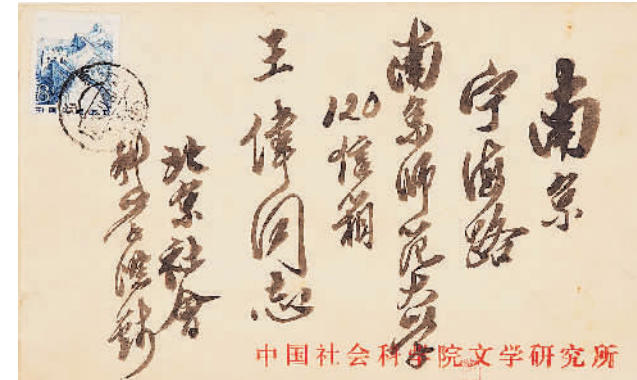 南京
宁海路
南京师范大学
120信箱
王偉同志
北京社會
科学院钱
中国社会科学院文学研究所